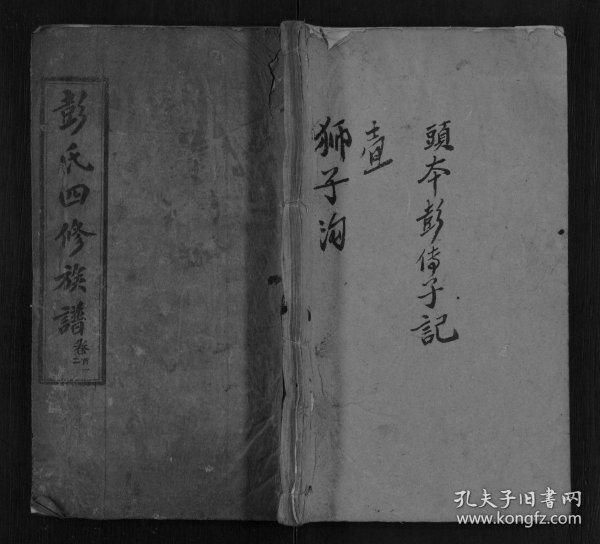 彭氏四修族譜
卷首
二一
頭本彭傳子記
壹
獅子沟
孔夫子旧書网
www.kongfz.com